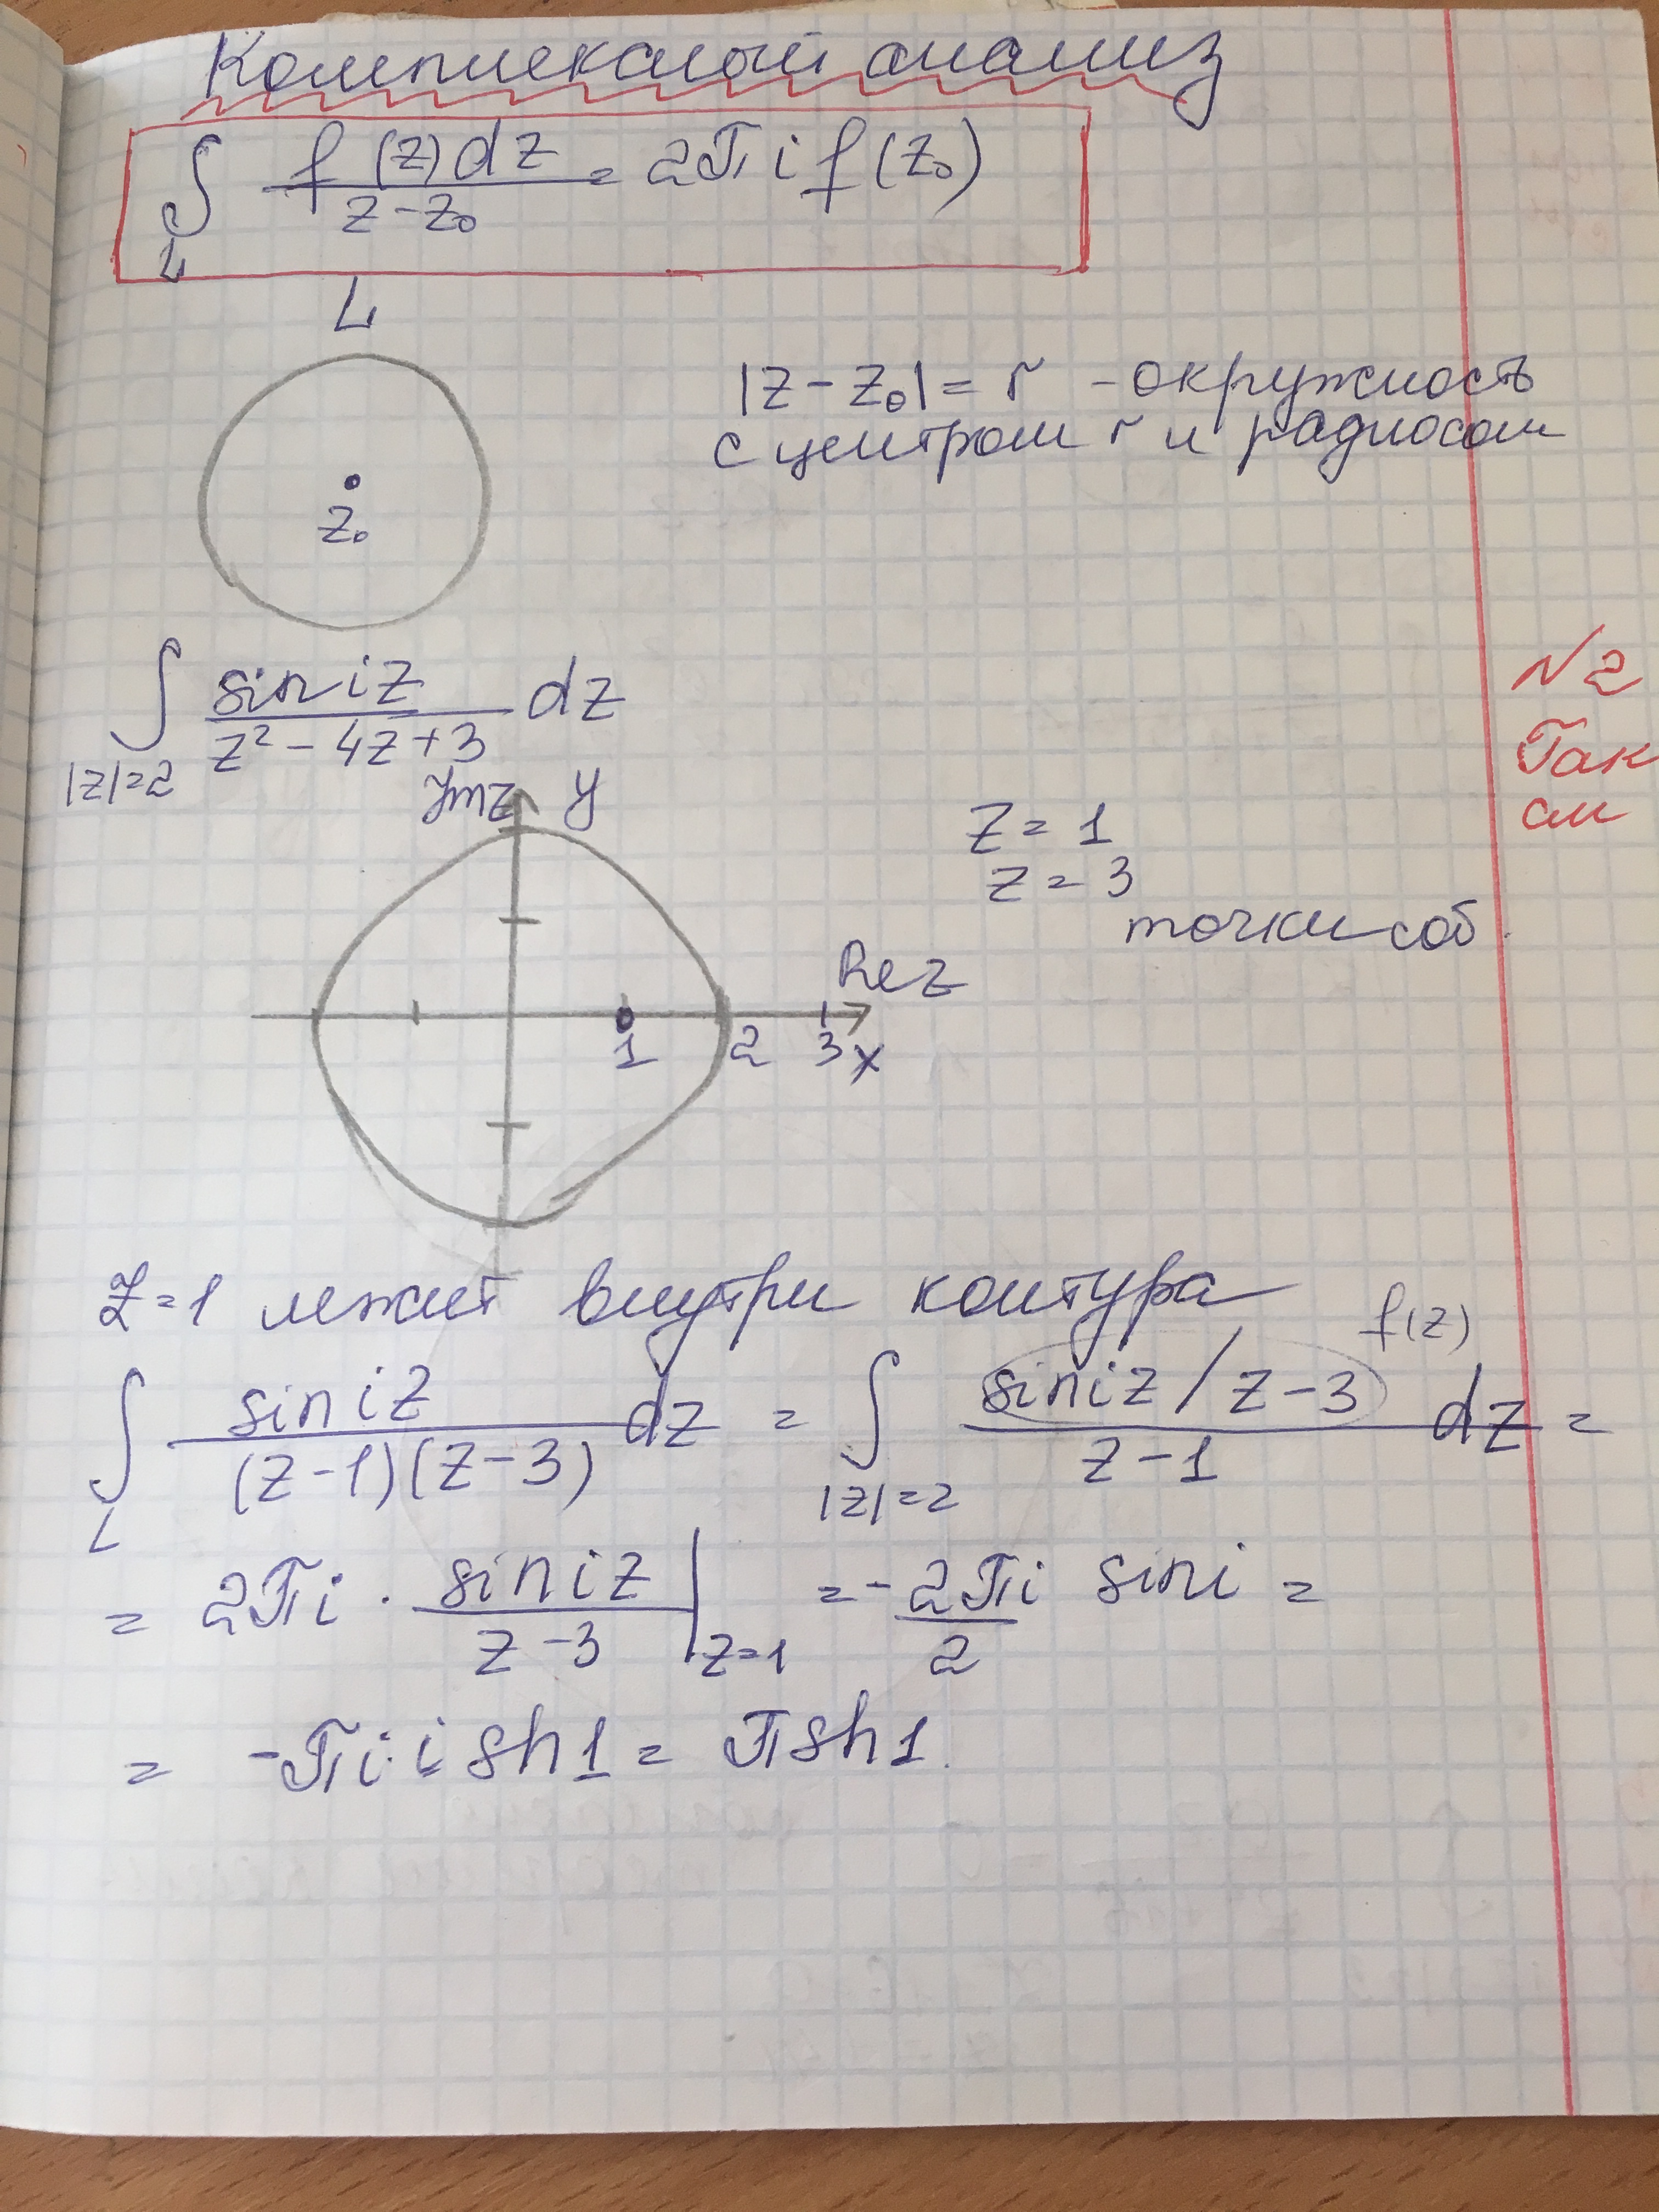 Комплексный анализ
∫_L f(z)dz / (z-z₀) = 2πi f(z₀)
L
|z-z₀| = r - окружность
с центром r и радиосом
z₀
∫_{|z|=2} sin iz / (z²-4z+3) dz
N2
Так
см
Ymz y
z = 1
z = 3
точки соб.
Rez
1 2 3 x
Z=1 лежит внутри контура
f(z)
∫_L sin iz / ((z-1)(z-3)) dz = ∫_{|z|=2} (sin iz / z-3) / (z-1) dz =
= 2πi · sin iz / (z-3) |_{z=1} = - 2πi/2 sin i =
= -πi·i sh1 = π sh1.